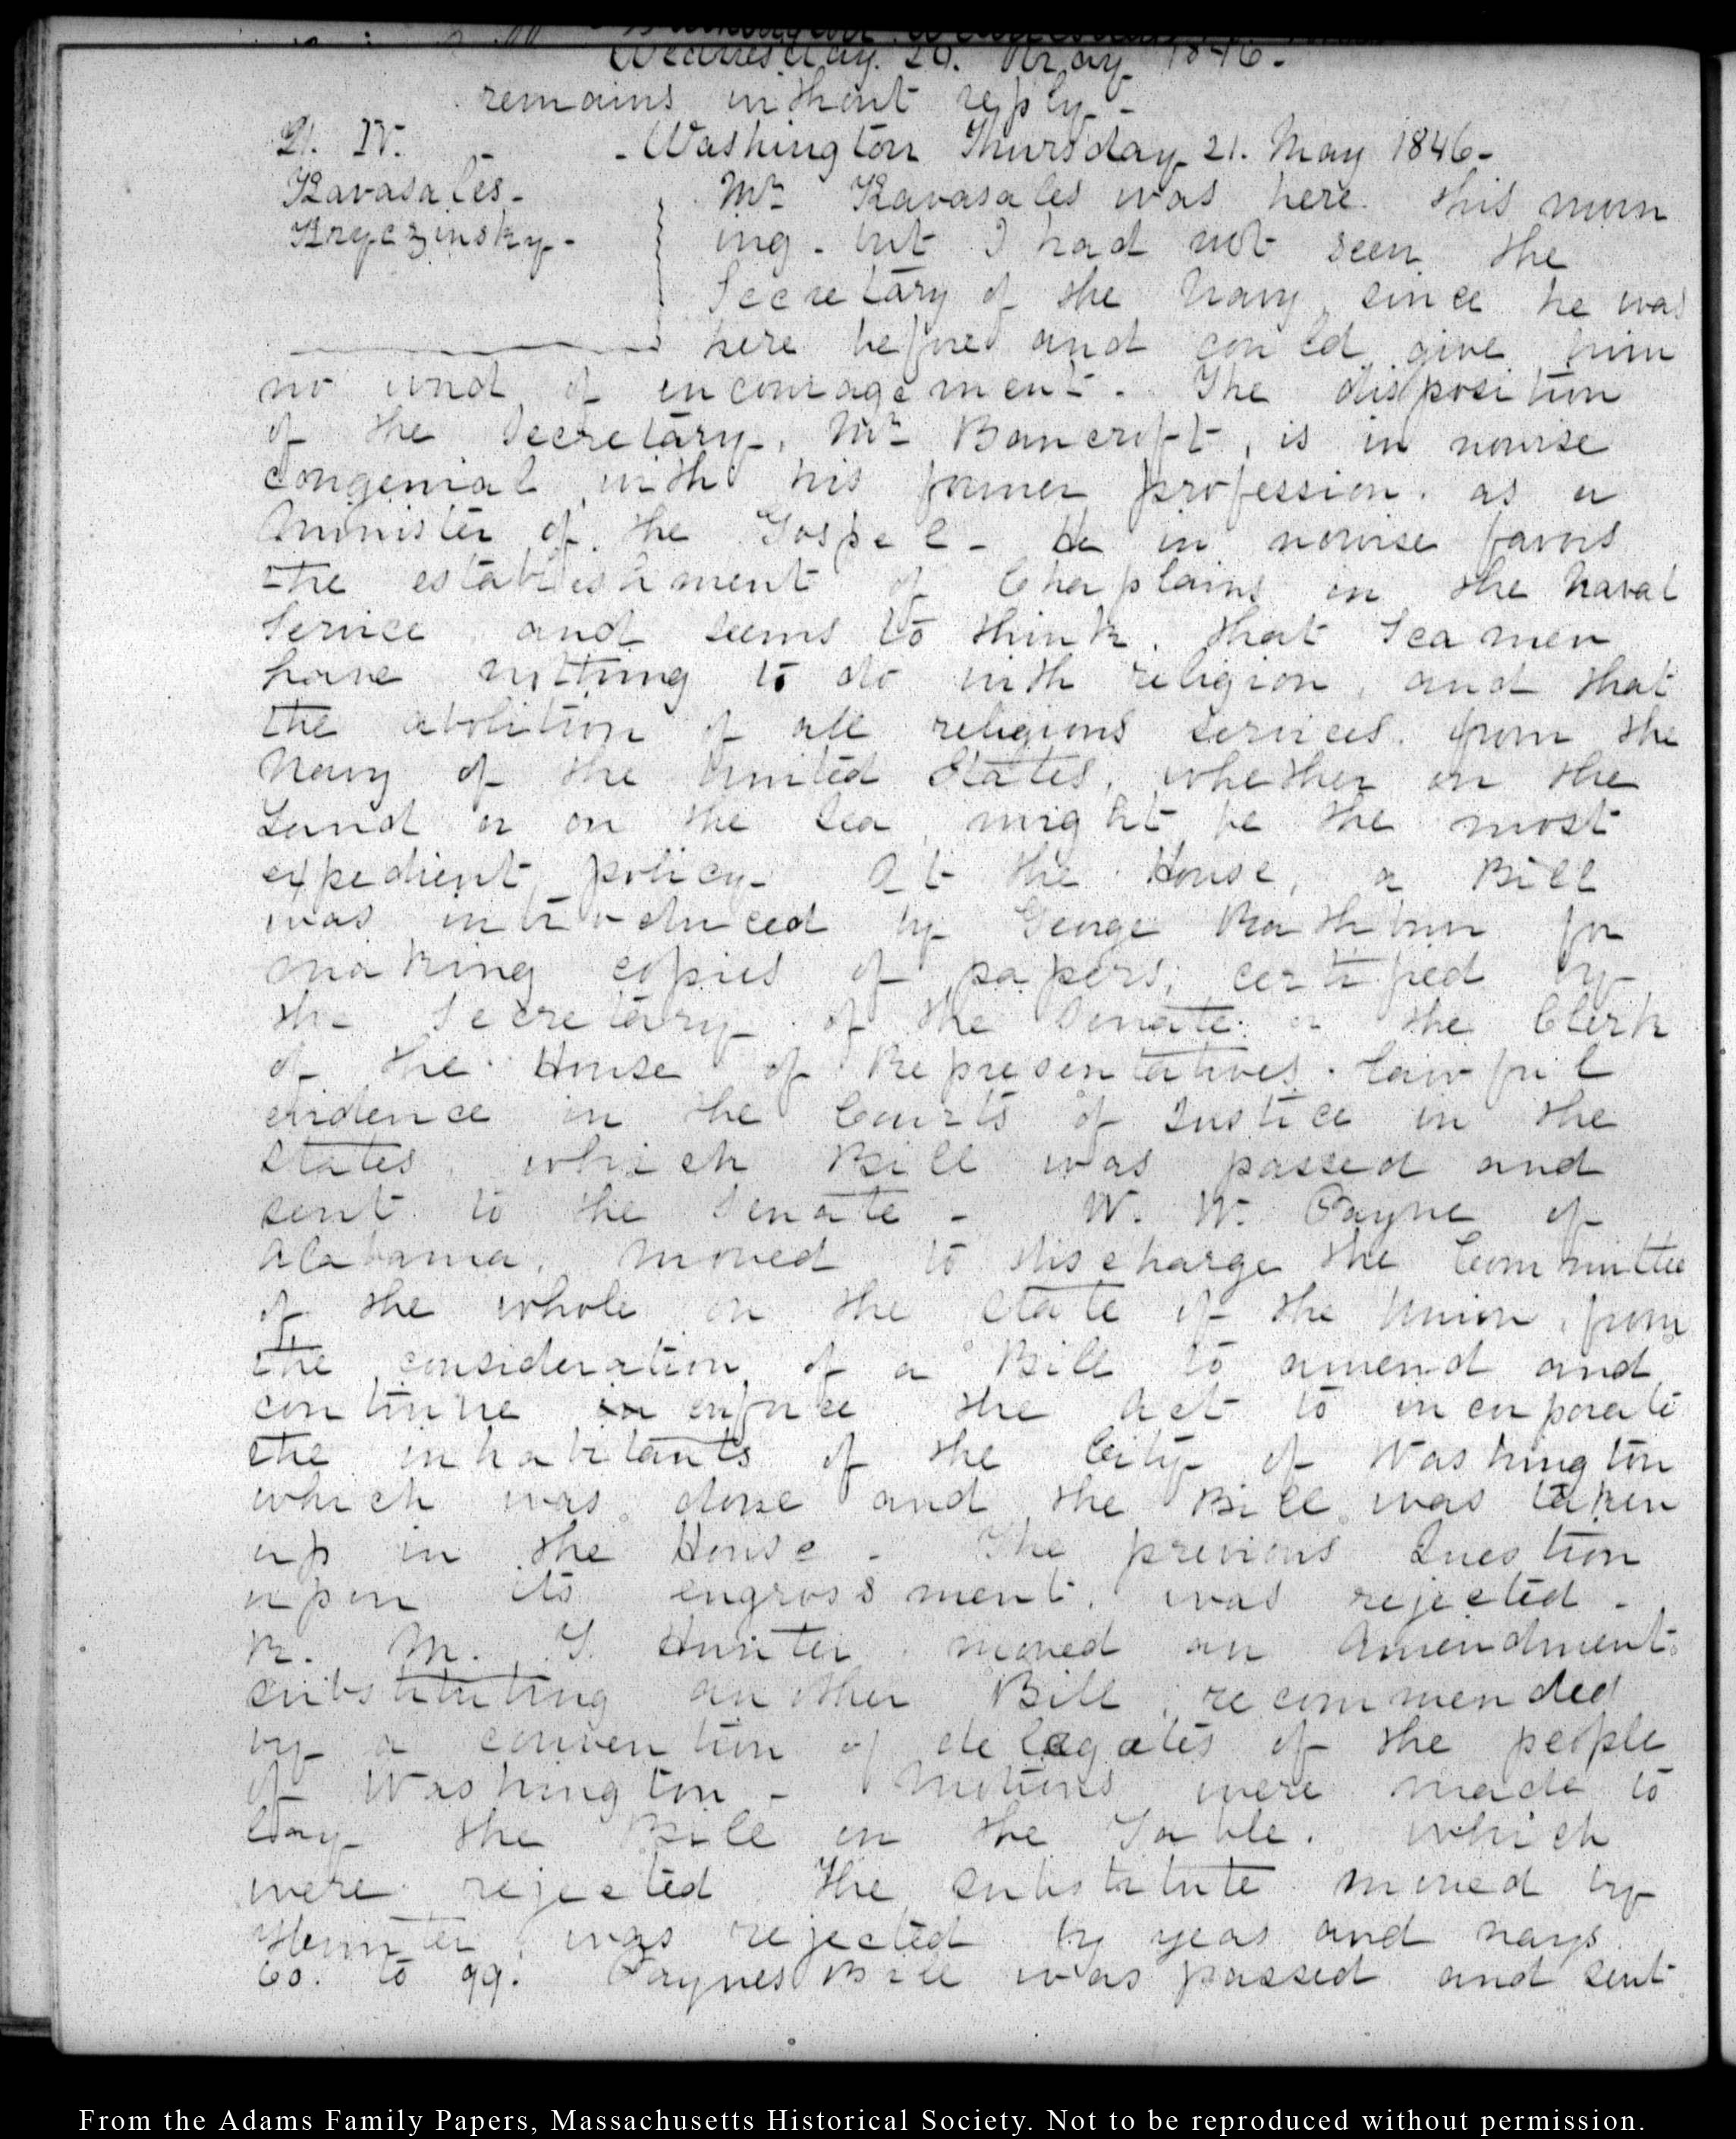 Wednesday. 20. May 1846.
remains without reply-
21. IV. - -Washington Thursday 21. May 1846-
Kavasales-
Kryczinsky-
Mr Kavasales was here this morn
ing- but I had not seen the
Secretary of the Navy, since he was
here before and could give him
no word of encouragement-. The disposition
of the Secretary, Mr Bancroft, is in nowise
congenial with his former profession. as a
Minister of the Gospel- He in nowise favors
the establishment of Chaplains in the Naval
Service, and seems to think, that Seamen
have nothing to do with religion, and that
the abolition of all religious services. from the
Navy of the United States, whether on the
Land or on the Sea, might be the most
expedient policy- At the House, a Bill
was introduced by George Rathbun for
making copies of papers, certified by
the Secretary of the Senate. or the Clerk
of the House of Representatives. lawful
evidence in the Courts of Justice in the
States, which Bill was passed and
sent to the Senate- W. W. Payne of
Alabama, moved to discharge the Committee
of the whole on the State of the Union, from
the consideration of a Bill to amend and
continue in enforce the Act to incorporate
the inhabitants of the City of Washington
which was done and the Bill was taken
up in the House- The previous Question
upon its engrossment, was rejected-
R. M. T. Hunter moved an Amendment.
substituting another Bill, recommended
by a convention of delegates of the people
of Washington- Motions were made to
lay the Bill on the Table. which
were rejected. The substitute moved by
Hunter, was rejected by yeas and nays
60. to 99. Paynes Bill was passed and sent
From the Adams Family Papers, Massachusetts Historical Society. Not to be reproduced without permission.